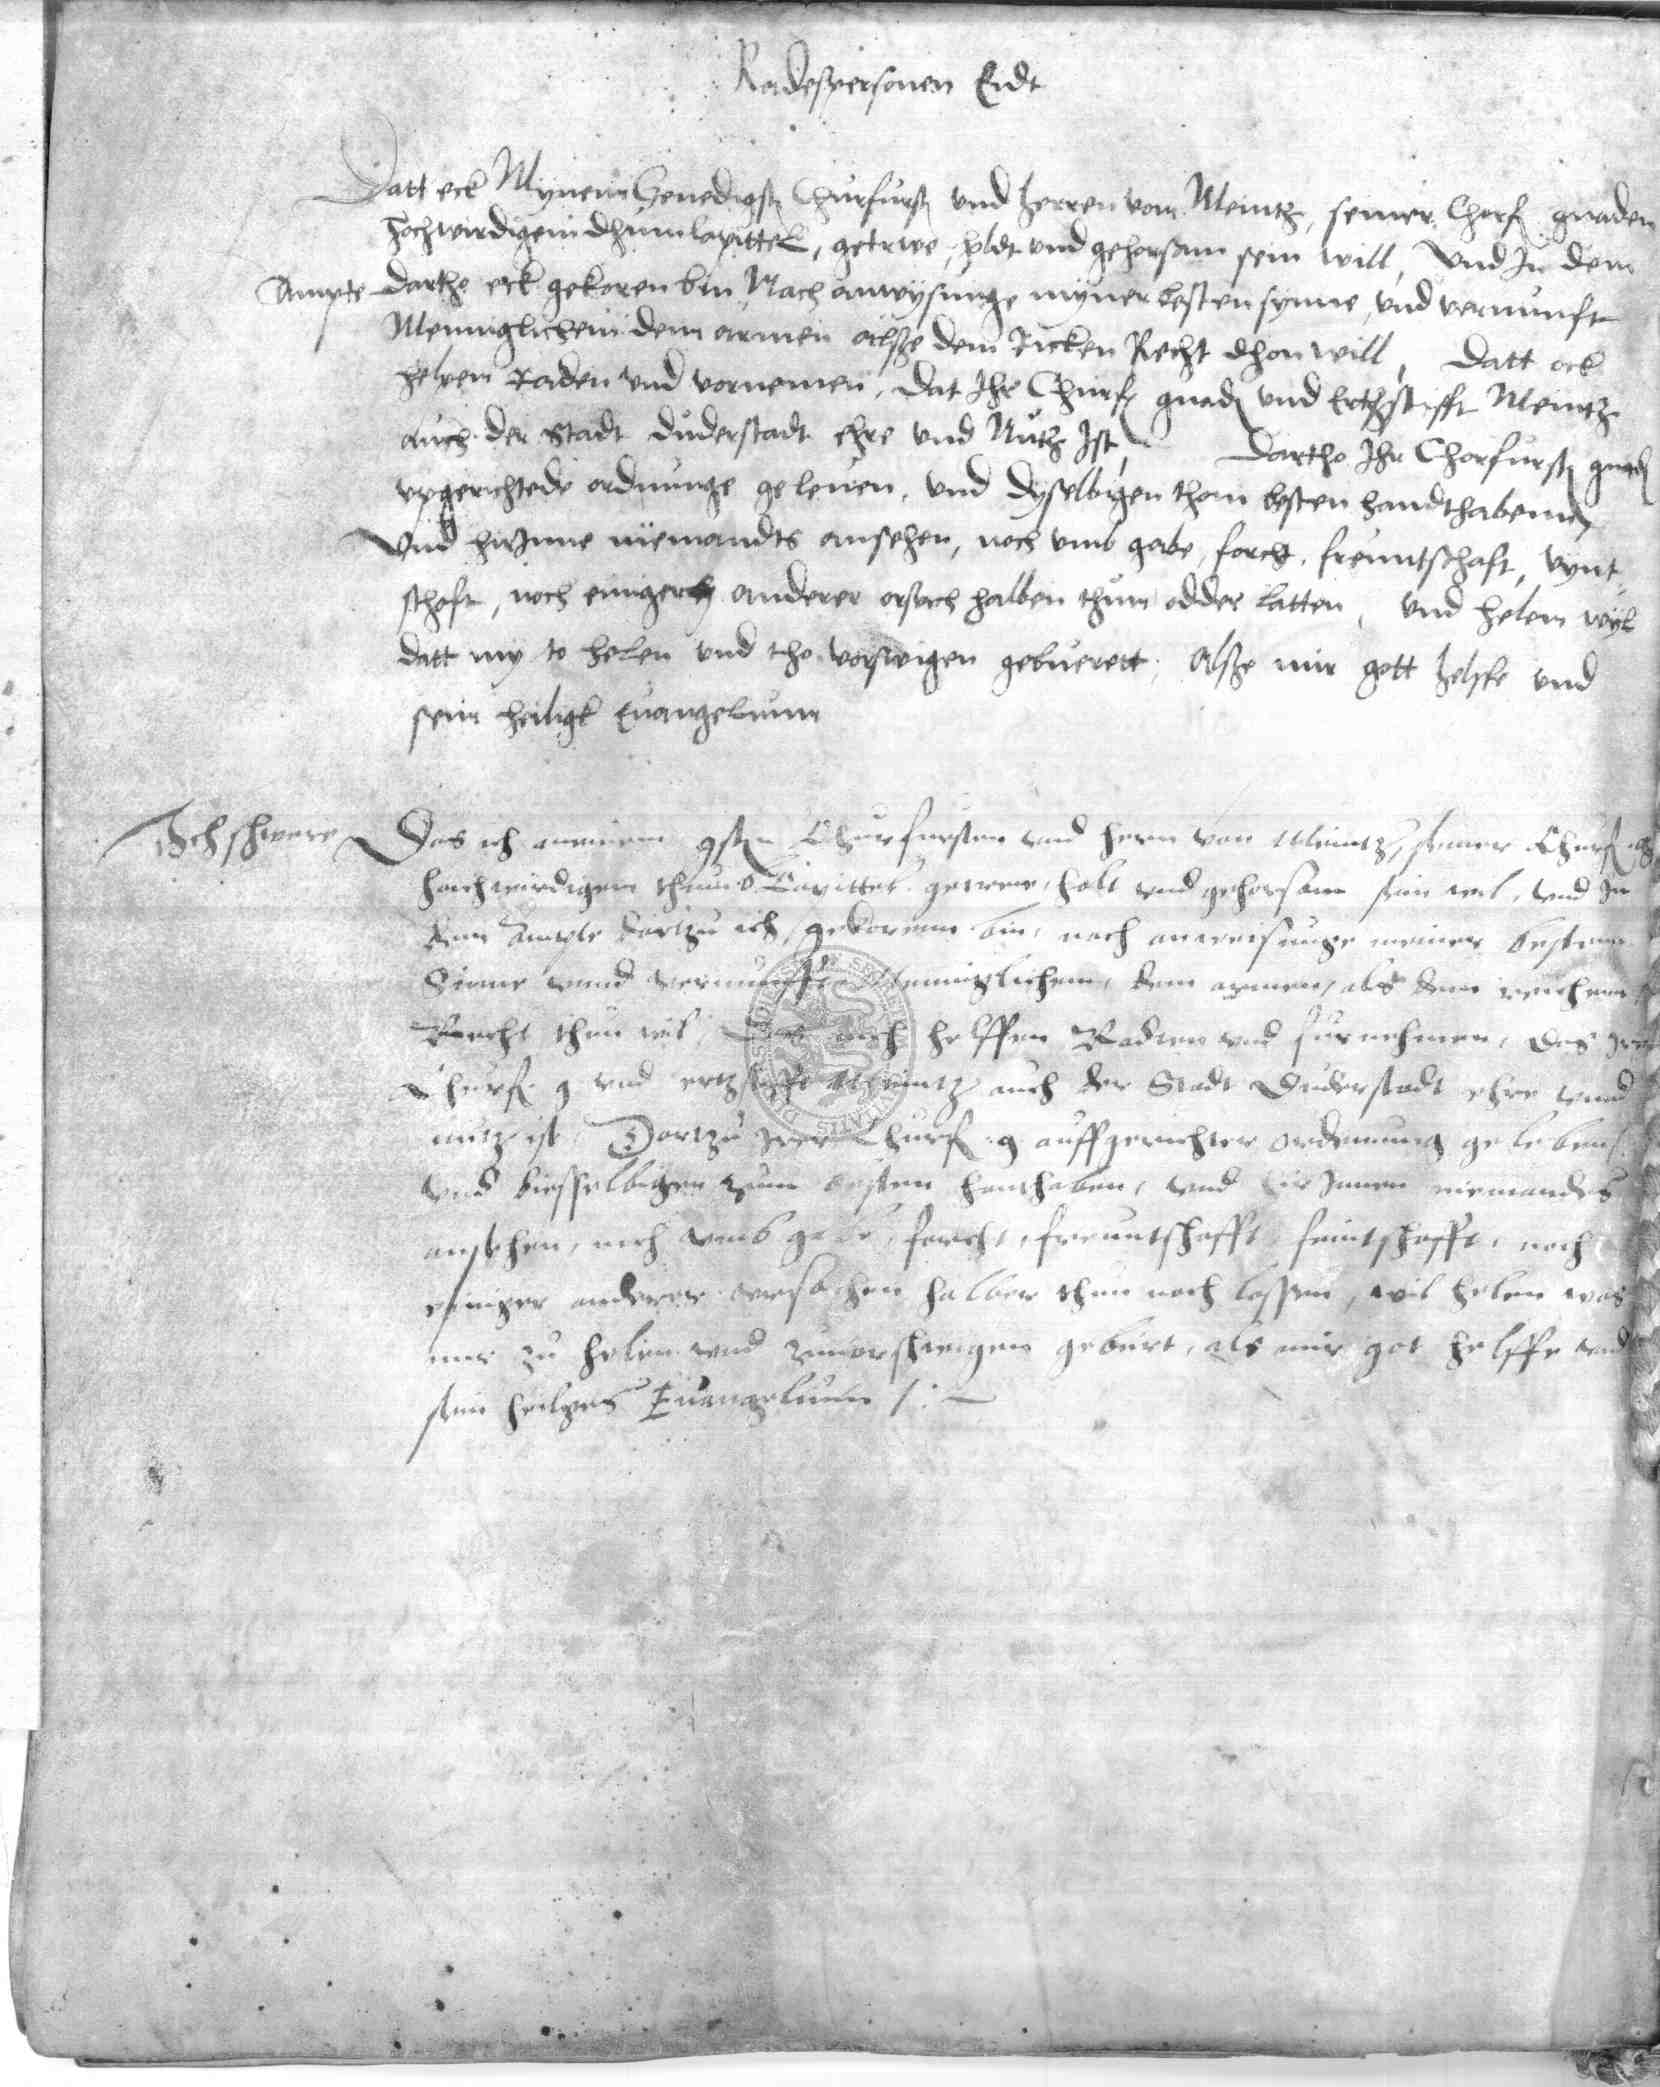 Radespersonen Eidt
Datt eck Mynem Genedigsten Churfursten und Herren vom Meintz, seiner Chorf. gnaden
Hochwirdigem dhumkapittel, getrwe, holdt und gehorsam sein will, Und In dem
Ampte dartho eck gekoren bin Nach anwysunge myner besten synne, und vernunft
Menniglichem dem armen alsse dem Ricken Recht dhon will, Datt ock
helpen Raden und vornemen, dat Ihr Churf. gnaden und Ertzstifft Meintz
auch der Stadt duderstadt ehre und Nutz Ist, Dartho Ihr Chorfurst. gnaden
upgerichtede ordnunge geleven, und dyselbigen thom besten handthabenn,
Und hirInne niemandts ansehen, noch umb gabe, forcht, freuntschaft, vynt
schaft, noch einigerley anderer orsach halben thun odder latten, und helen wyl
datt my to helen und tho vorswigen gebuerett, Alsse mir gott helffe und
sein heiligk Euangelium
Ich schwere Das ich meinem gsten Churfursten und hern von Meintz, seiner Churf. g.
hochwirdigem thumb Capittel getrewe, holt und gehorsam sein wil, und In
dem Ampte dartzu ich gekorenn bin, nach anweisunge meiner besten
Sinne unnd vernunfft Menniglichem, dem armen, als dem reichenn
Recht thun wil, Das auch helffen Radten und furnehmen, das Irer
Churf. g. und ertzstifft Meintz auch der Stadt Duderstadt ehre unnd
nutz ist, Dartzu Irer Churf. g. auffgerichter ordenung geleben,
und diesselbigen zum besten hanthaben, und hirInnen niemandes
ansehen, noch umb gabe, forcht, freuntschafft, feintschafft, noch
einiger anderer ursachen halber thun noch lassen, wil helen was
mir zu helen und zuvorschweigen geburt, als mir got helffe und
sein heilges Euangelium /: